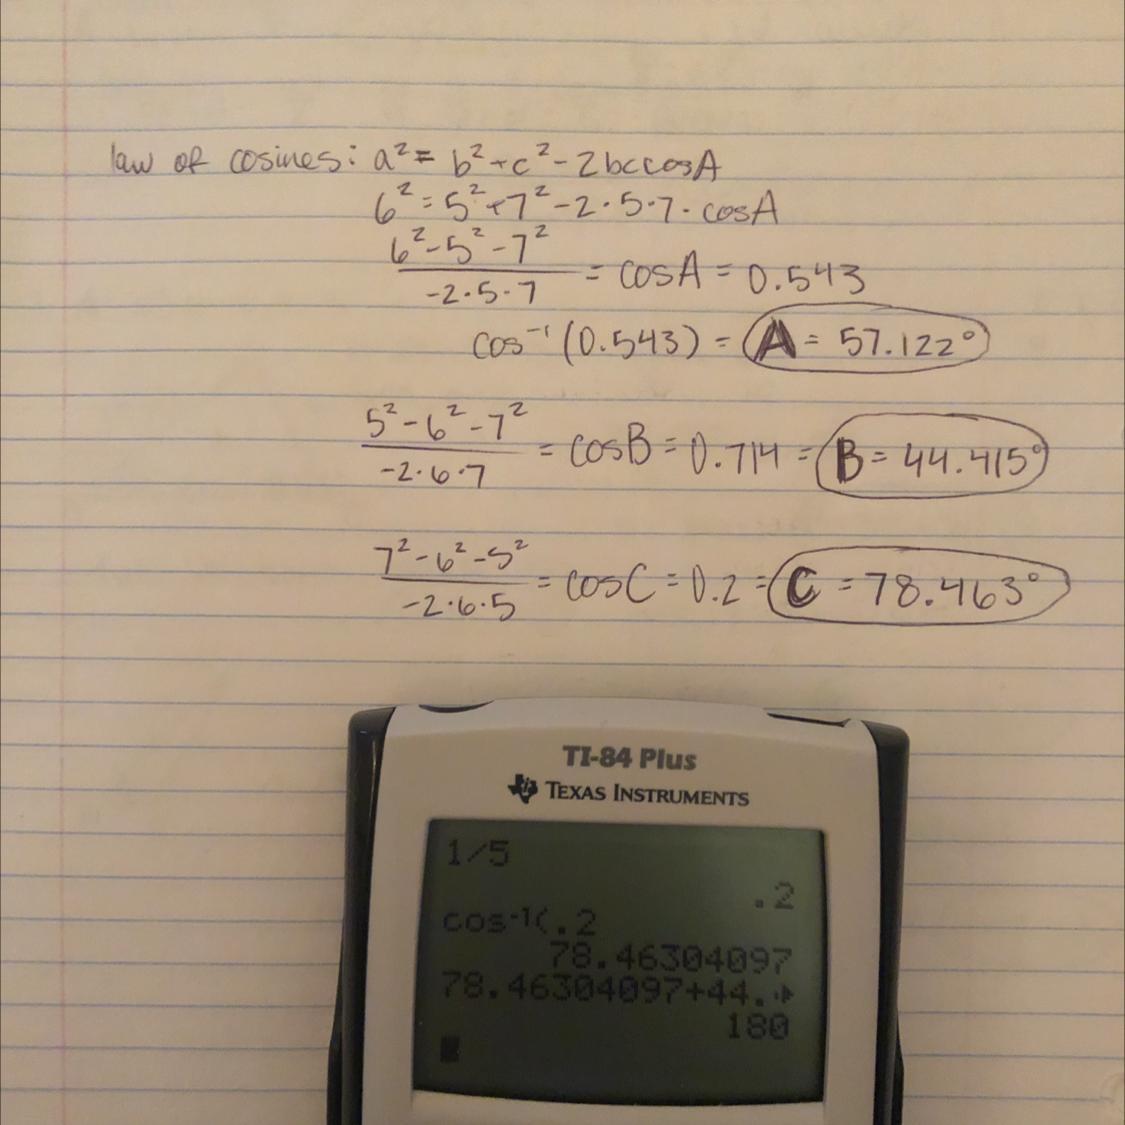 law of cosines: a² = b² + c² - 2bccosA
6² = 5² + 7² - 2·5·7·cosA
6² - 5² - 7² / -2·5·7 = cosA = 0.543
cos⁻¹(0.543) = A = 57.122°
5² - 6² - 7² / -2·6·7 = cosB = 0.714 = B = 44.415°
7² - 6² - 5² / -2·6·5 = cosC = 0.2 = C = 78.463°
TI-84 Plus
TEXAS INSTRUMENTS
1/5
.2
cos⁻¹(.2
78.46304097
78.46304097+44.
180